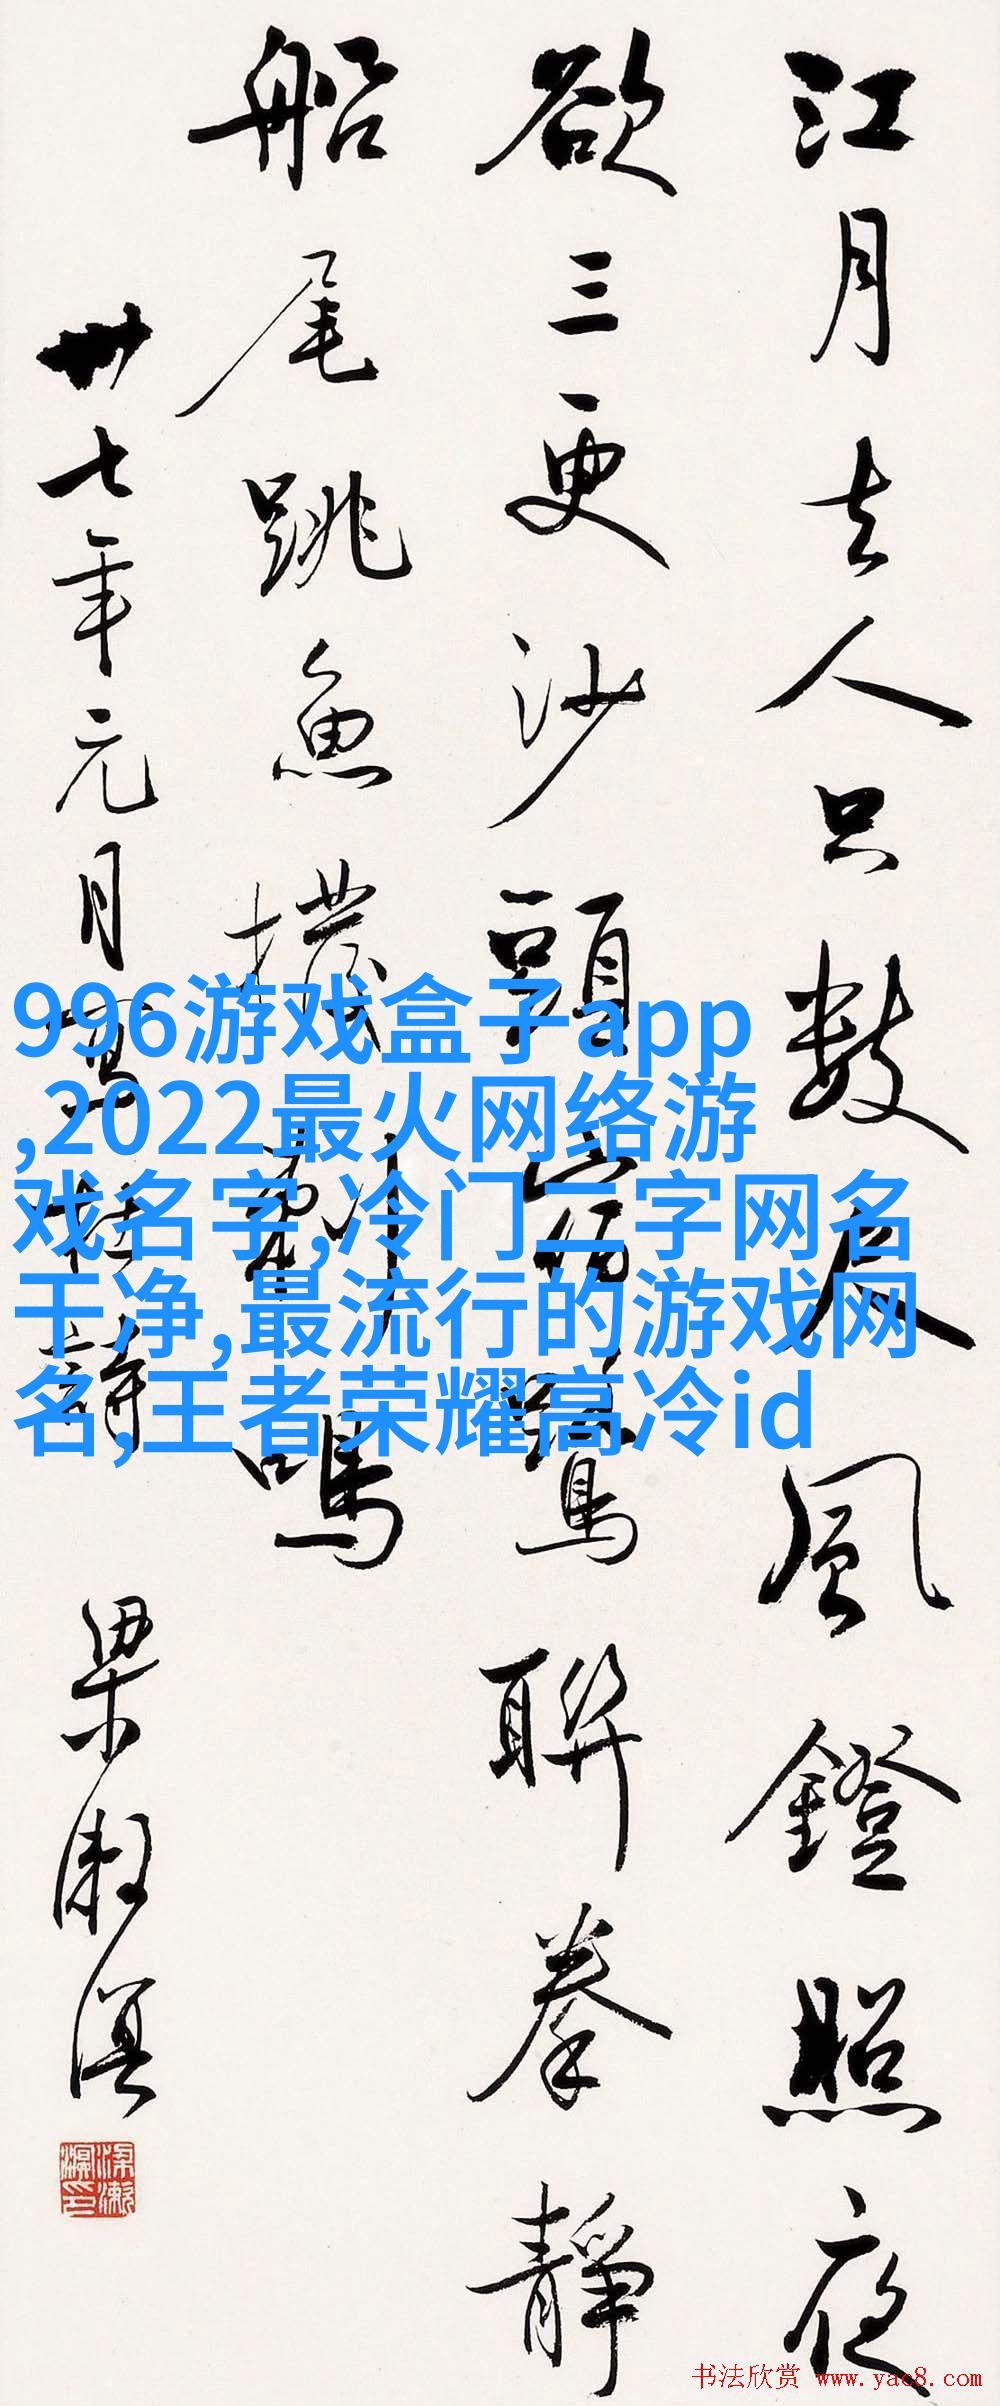 江月去人只數尺風鐙照夜
欲三更沙頭宿鷺聯拳靜
船尾跳魚撥剌鳴
卅七年元月書杜詩
梁漱溟
梁漱溟印
996游戏盒子app
,2022最火网络游
戏名字,冷门二字网名
干净,最流行的游戏网
名,王者荣耀高冷id
书法欣赏 www.yac8.com